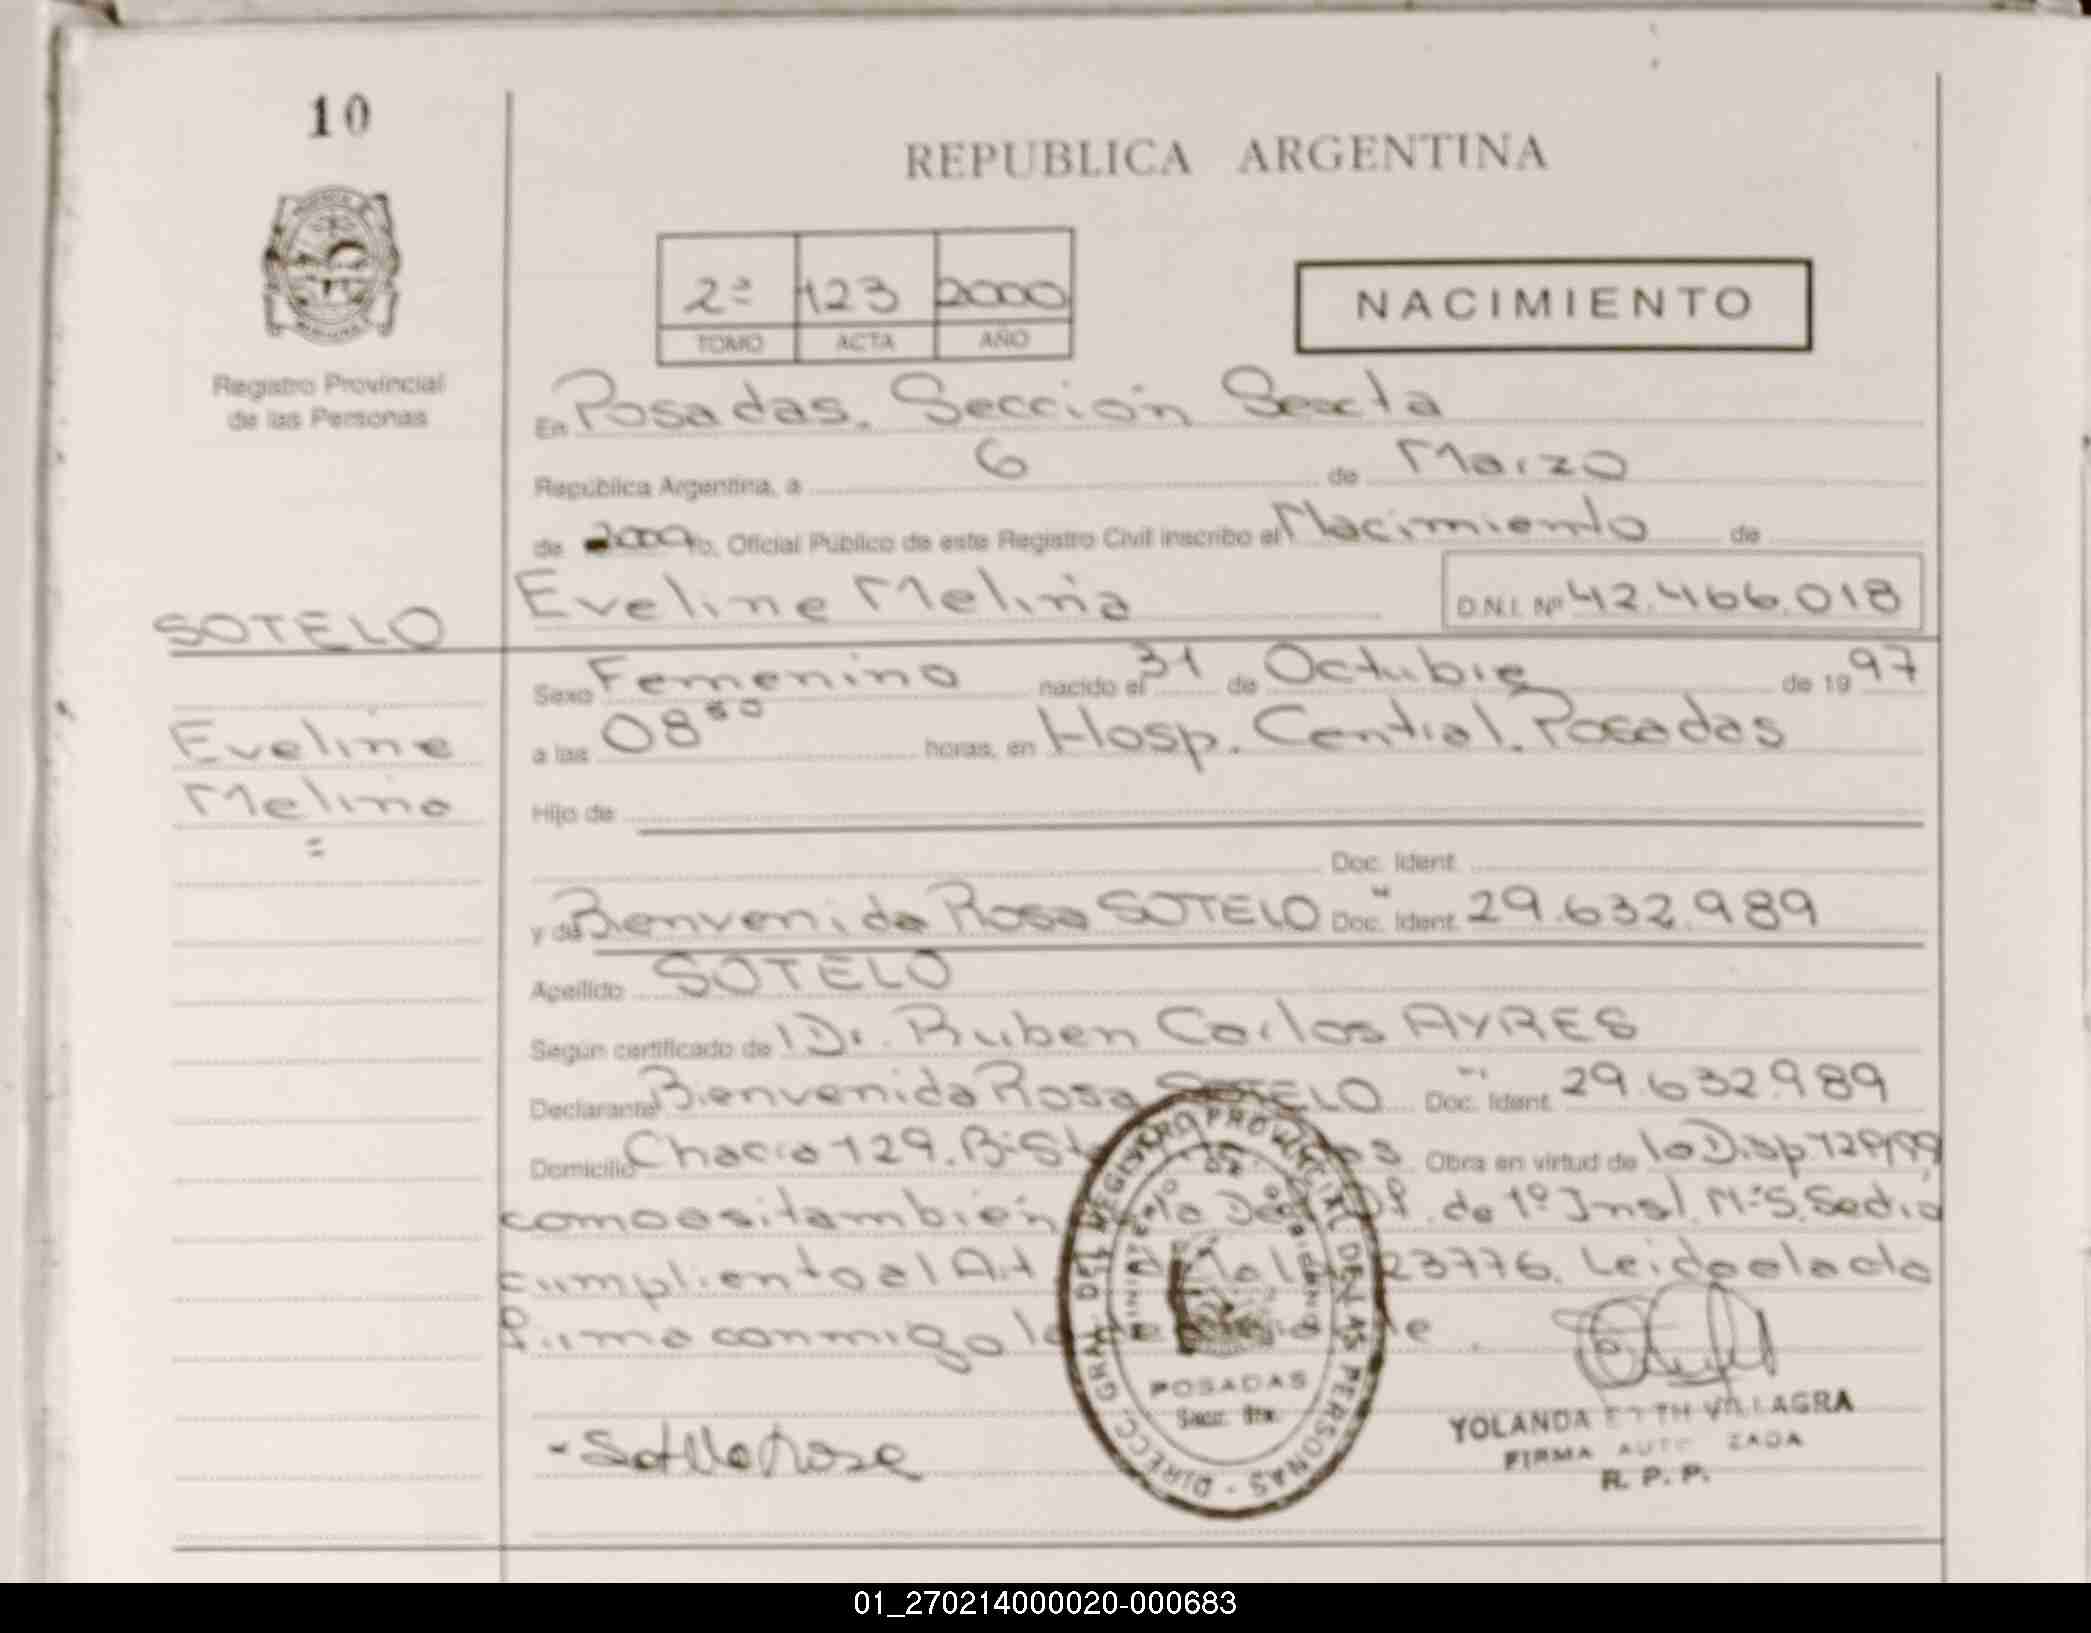 10
REPUBLICA ARGENTINA
2ª 123 2000
TOMO ACTA AÑO
NACIMIENTO
Registro Provincial
de las Personas
En Posadas. Sección Sexta
República Argentina, a 6 de Marzo
de 2000 Yo, Oficial Público de este Registro Civil inscribo el Nacimiento de
Eveline Melina D.N.I. Nº 42.466.018
SOTELO
Sexo Femenino nacido el 31 de Octubre de 1997
Eveline
Melina
=
a las 08⁵⁰ horas, en Hosp. Central. Posadas
Hijo de
Doc. Ident.
y de Bienvenida Rosa SOTELO Doc. Ident. 29.632.989
Apellido SOTELO
Según certificado de Dr. Ruben Carlos AYRES
Declarante Bienvenida Rosa SOTELO Doc. Ident. 29.632.989
Domicilio Chaco 129. Obra en virtud de la Disp 129/99
como asi tambien la de 1º Inst. Nº 5. Se dio
cumpliento al Art 23776. Leido el acta
firma conmigo la
DIRECC. GRAL. DEL REGISTRO PROVINCIAL DE LAS PERSONAS
MINISTERIO DE GOBIERNO
POSADAS
Secc. 6ta.
- Sotelo Rosa
YOLANDA VILLAGRA
FIRMA AUTORIZADA
R. P. P.
01_270214000020-000683